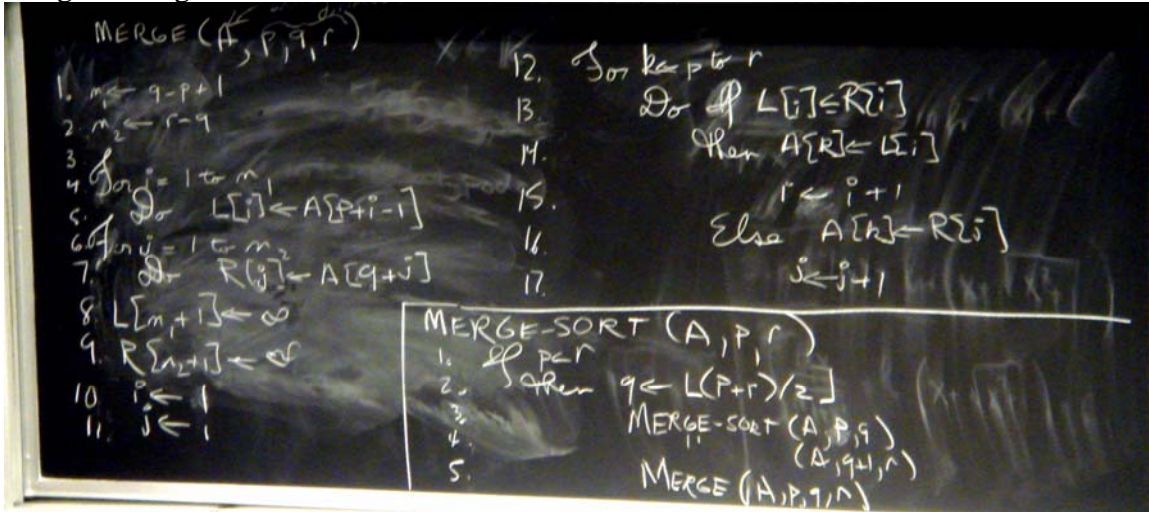 MERGE (A, p, q, r)
1. n₁ ← q-p+1
2. n₂ ← r-q
3.
4. For i = 1 to n₁
5. Do L[i] ← A[p+i-1]
6. For j = 1 to n₂
7. Do R[j] ← A[q+j]
8. L[n₁+1] ← ∞
9. R[n₂+1] ← ∞
10. i ← 1
11. j ← 1
12. For k ← p to r
13. Do if L[i] ≤ R[i]
14. then A[k] ← L[i]
15. i ← i+1
16. Else A[k] ← R[j]
17. j ← j+1
MERGE-SORT (A, p, r)
1. If p<r
2. then q ← ⌊(p+r)/2⌋
3. MERGE-SORT (A, p, q)
4. " (A, q+1, r)
5. MERGE (A, p, q, r)